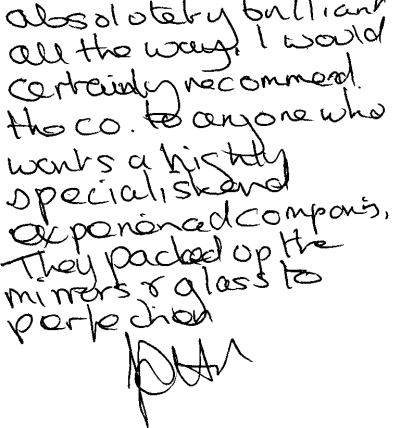 absolutely brilliant
all the way. I would
certainly recommend
the co. to anyone who
wants a highly
specialised
experienced company.
They packed up the
mirrors & glass to
perfection